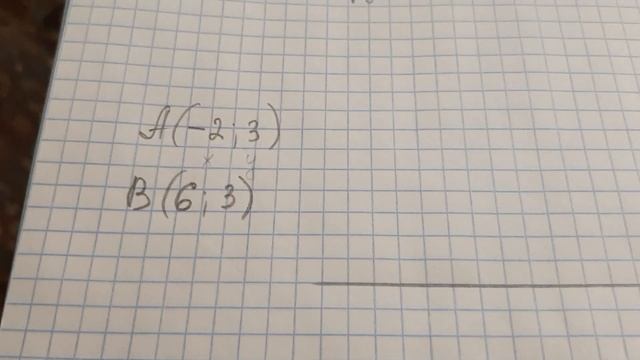 A(-2; 3)
x y
B(6; 3)